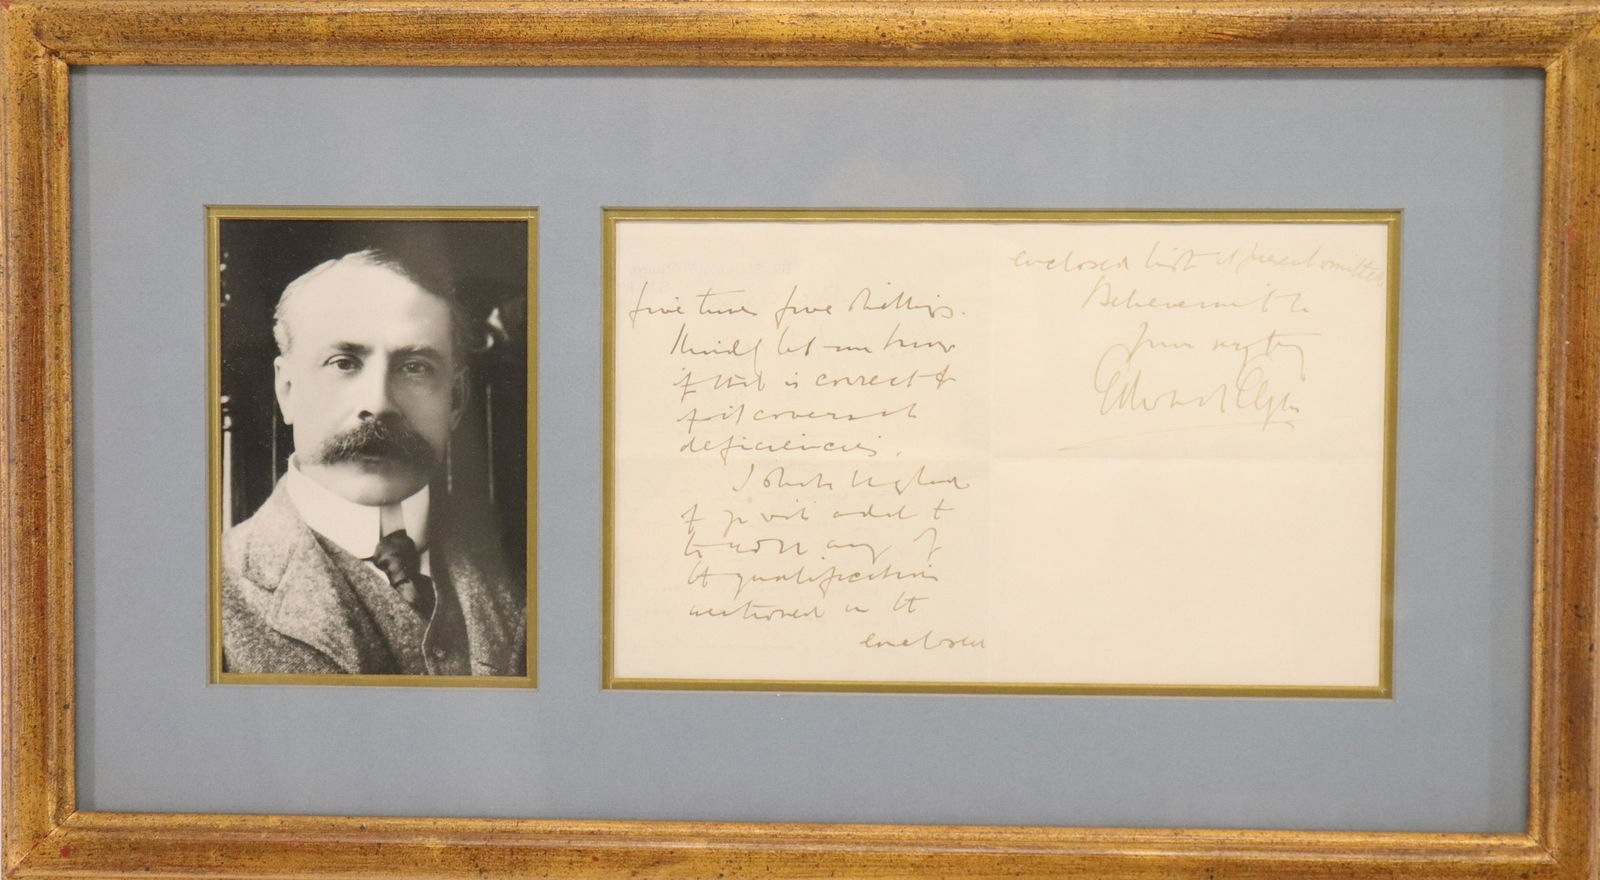 five times five shillings.
Kindly let me know
if that is correct &
if it covers all
deficiencies.
I should be glad
if you will add
to
qualifications
mentioned in the
enclosed
enclosed list at present omitted
Believe me to be
Yours very truly
Edward Elgar